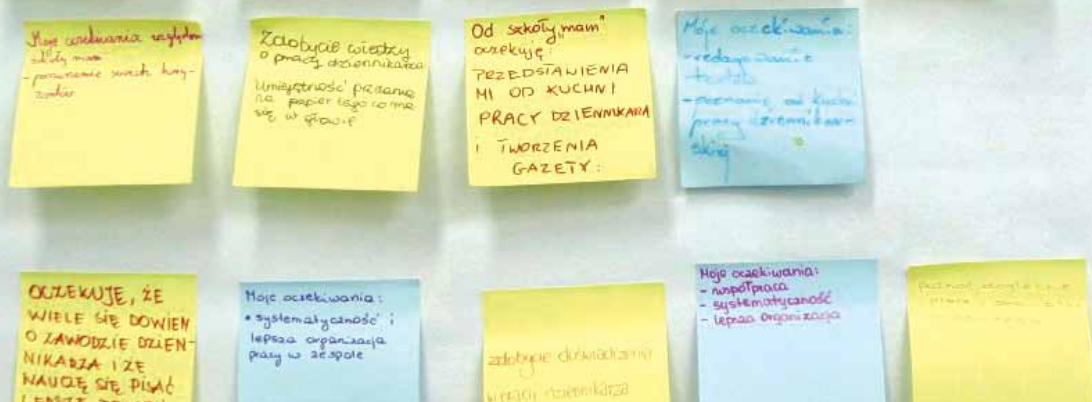 Moje oczekiwania względem
szkoły mam
- poruszenie swoich hory-
zontów
Zdobycie wiedzy
o pracy dziennikarza
Umiejętność
na papier tego co ma
się w głowie
Od szkoły „mam"
oczekuję:
PRZEDSTAWIENIA
MI OD KUCHNI
PRACY DZIENNIKARA
I TWORZENIA
GAZETY:
Moje oczekiwania:
- redagowanie
- poznanie od kuchni
pracy dziennikar-
skiej
OCZEKUJĘ, ŻE
WIELE SIĘ DOWIEM
O ZAWODZIE DZIEN-
NIKARZA I ŻE
NAUCZĘ SIĘ PISAĆ
Moje oczekiwania:
• systematyczność i
lepsza organizacja
pracy w zespole
zdobycie doświadczenia
w pracy dziennikarza
Moje oczekiwania:
- współpraca
- systematyczność
- lepsza organizacja